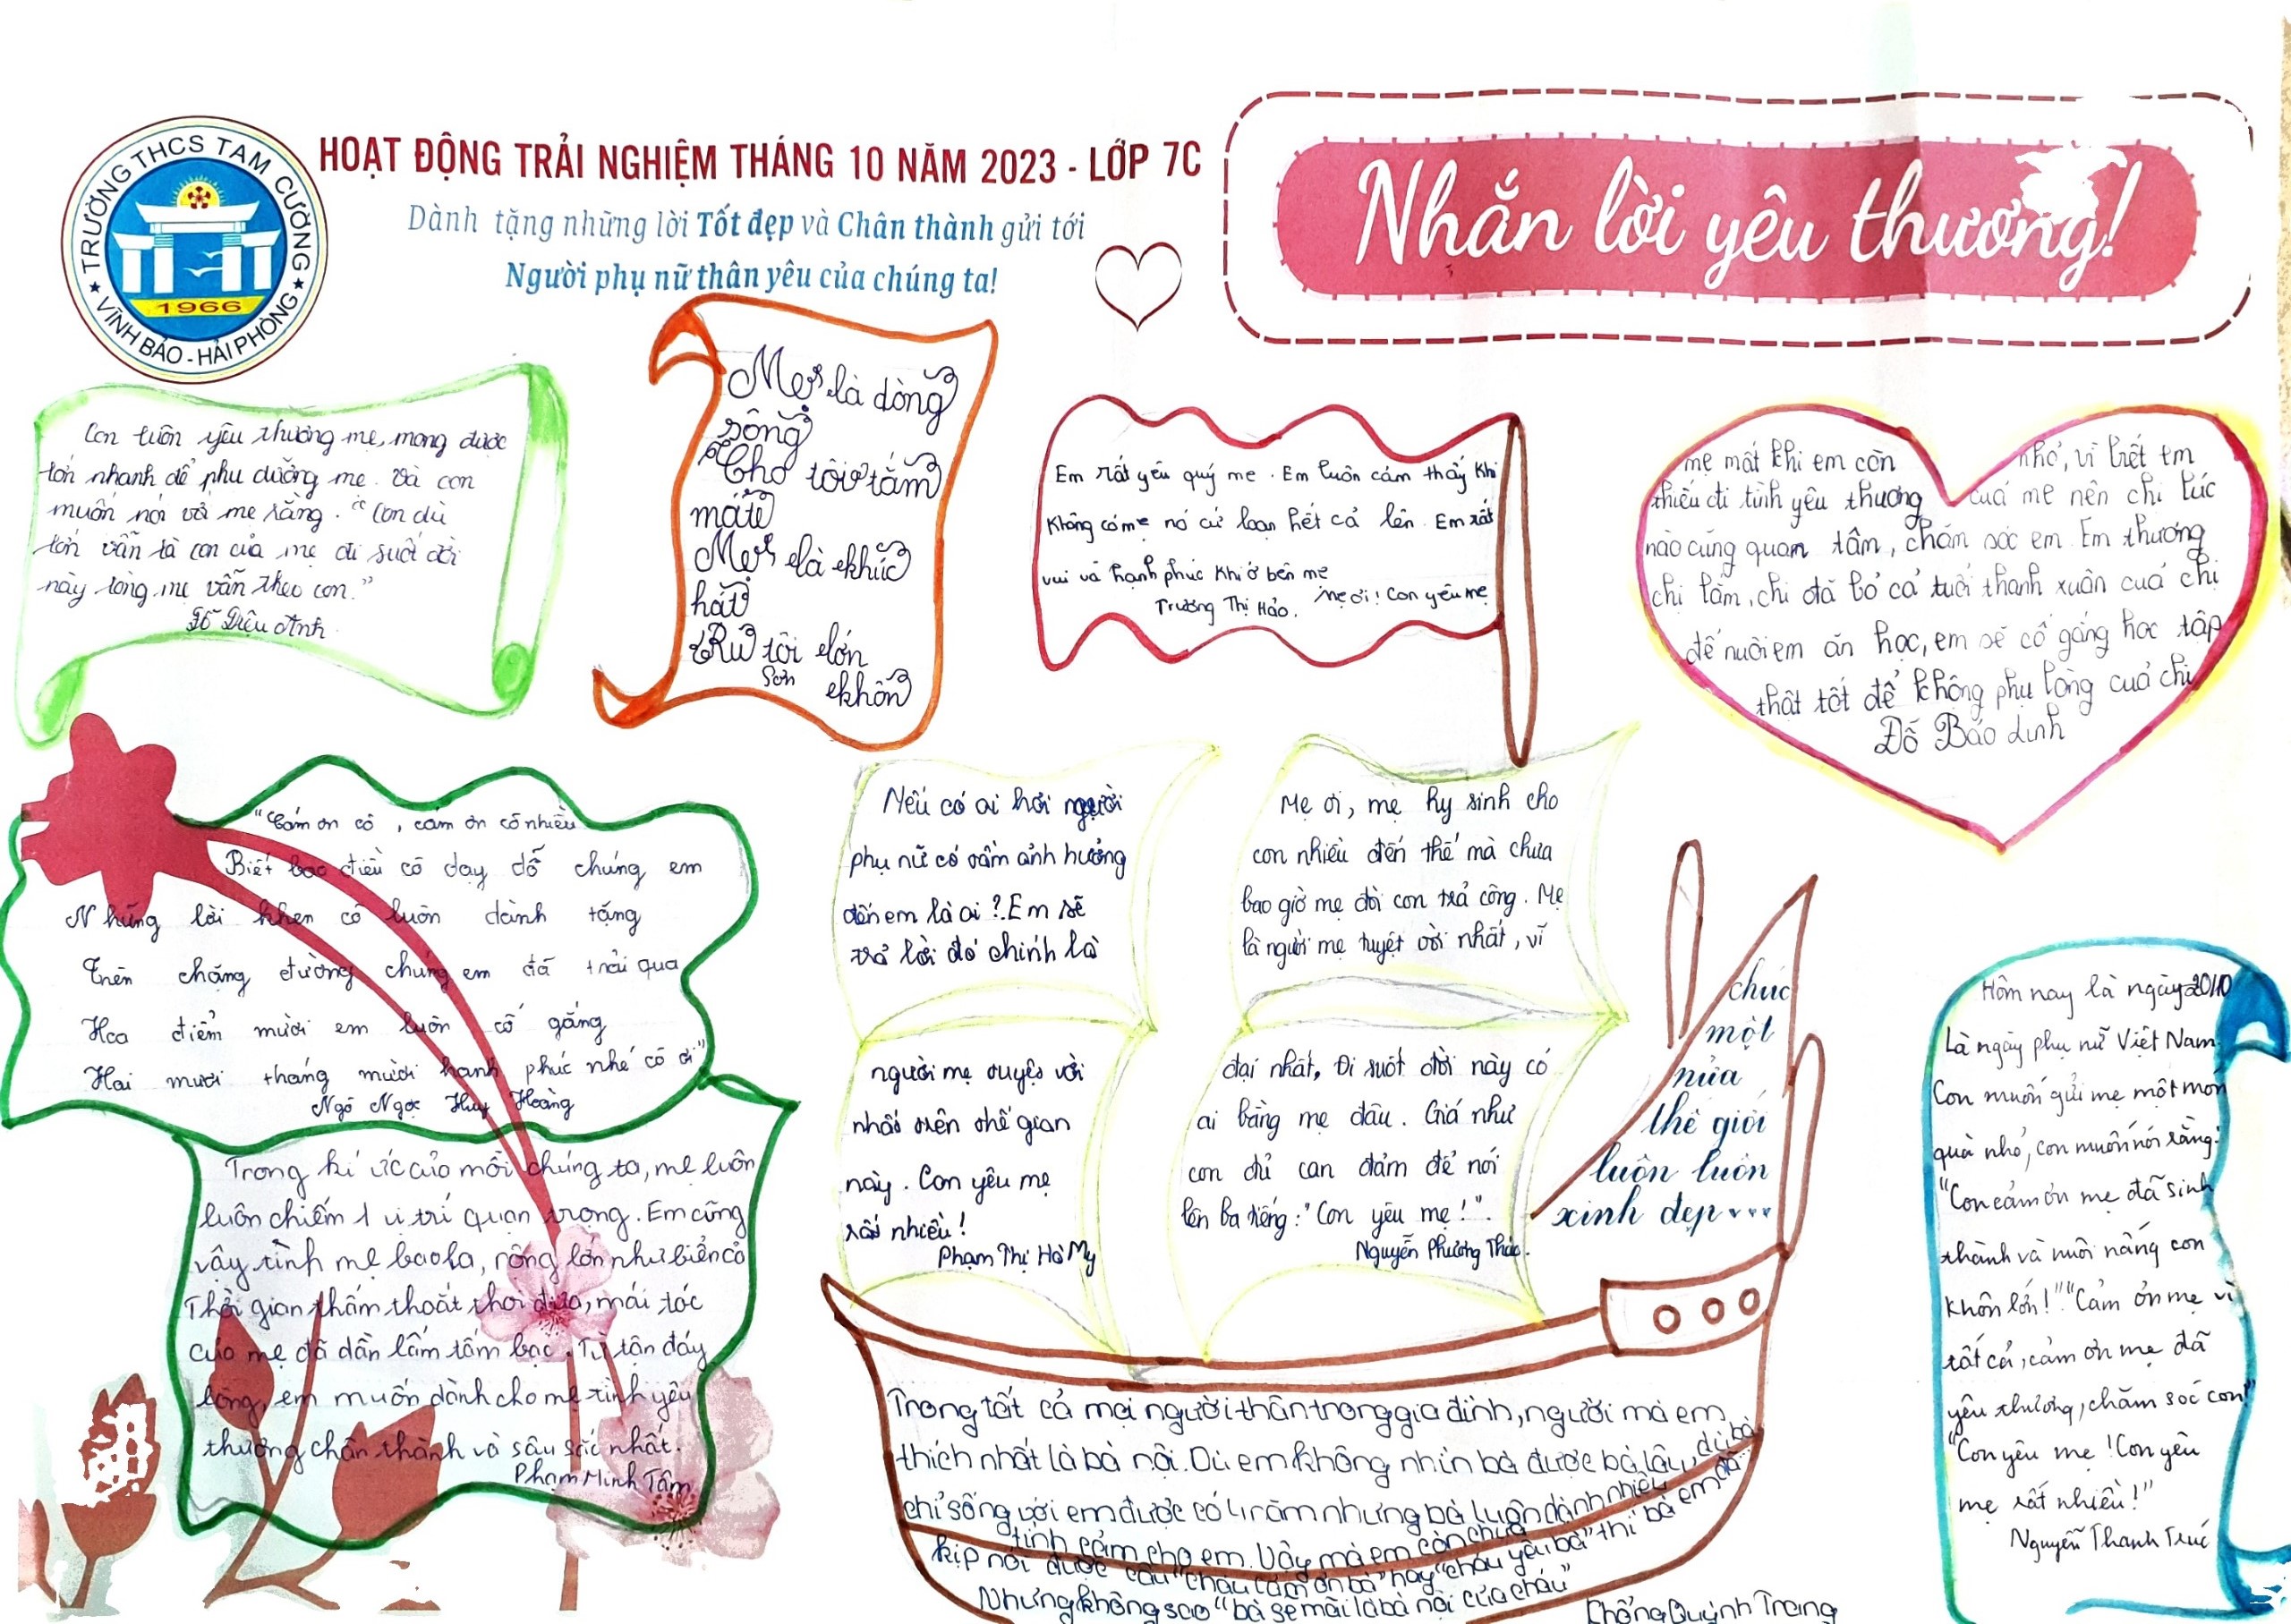 TRƯỜNG THCS TAM CƯỜNG
1966
VĨNH BẢO - HẢI PHÒNG
HOẠT ĐỘNG TRẢI NGHIỆM THÁNG 10 NĂM 2023 - LỚP 7C
Dành tặng những lời Tốt đẹp và Chân thành gửi tới
Người phụ nữ thân yêu của chúng ta!
Nhắn lời yêu thương!
Con luôn yêu thương mẹ, mong được
lớn nhanh để phụ dưỡng mẹ. Và con
muốn nói với mẹ rằng. "Con dù
lớn vẫn là con của mẹ đi suốt đời
này lòng mẹ vẫn theo con."
Đỗ Diệu Anh
Mẹ là dòng
sông
Cho tôi tắm
mát
Mẹ là khúc
hát
Ru tôi lớn
khôn
Sơn
Em rất yêu quý mẹ. Em luôn cảm thấy khi
không có mẹ nó cứ loạn hết cả lên. Em rất
vui và hạnh phúc khi ở bên mẹ
Mẹ ơi! Con yêu mẹ
Trương Thị Hảo.
mẹ mất khi em còn nhỏ, vì biết em
thiếu đi tình yêu thương của mẹ nên chị lúc
nào cũng quan tâm, chăm sóc em. Em thương
chị lắm, chị đã bỏ cả tuổi thanh xuân của chị
để nuôi em ăn học, em sẽ cố gắng học tập
thật tốt để không phụ lòng của chị
Đỗ Bảo Linh
"Cám ơn cô, cám ơn cô nhiều
Biết bao điều cô dạy dỗ chúng em
Những lời khen cô luôn dành tặng
Trên chặng đường chúng em đã trải qua
Hoa điểm mười em luôn cố gắng
Hai mươi tháng mười hạnh phúc nhé cô ơi"
Ngô Ngọc Huy Hoàng
Trong kí ức của mỗi chúng ta, mẹ luôn
luôn chiếm 1 vị trí quan trọng. Em cũng
vậy tình mẹ bao la, rộng lớn như biển cả
Thời gian thấm thoát thoi đưa, mái tóc
của mẹ đã dần lấm tấm bạc. Từ tận đáy
lòng, em muốn dành cho mẹ tình yêu
thương chân thành và sâu sắc nhất.
Phạm Minh Tâm
Nếu có ai hỏi người
phụ nữ có tầm ảnh hưởng
đến em là ai? Em sẽ
trả lời đó chính là
người mẹ tuyệt vời
nhất trên thế gian
này. Con yêu mẹ
rất nhiều!
Phạm Thị Hà My
Mẹ ơi, mẹ hy sinh cho
con nhiều đến thế mà chưa
bao giờ mẹ đòi con trả công. Mẹ
là người mẹ tuyệt vời nhất, vĩ
đại nhất, Đi suốt đời này có
ai bằng mẹ đâu. Giá như
con đủ can đảm để nói
lên ba tiếng: "Con yêu mẹ!".
Nguyễn Phương Thảo.
chúc
một
nửa
thế giới
luôn luôn
xinh đẹp
Trong tất cả mọi người thân trong gia đình, người mà em
thích nhất là bà nội. Dù em không nhìn bà được bà lâu, dù bà
chỉ sống với em được có 4 năm nhưng bà luôn dành nhiều
tình cảm cho em. Vậy mà em còn chưa
kịp nói được câu "cháu cảm ơn bà" hay "cháu yêu bà" thì bà em đã...
Nhưng không sao "bà sẽ mãi là bà nội của cháu"
Quỳnh Trang
Hôm nay là ngày 20/10
Là ngày phụ nữ Việt Nam
Con muốn gửi mẹ một món
quà nhỏ, con muốn nói rằng:
"Con cảm ơn mẹ đã sinh
thành và nuôi nấng con
khôn lớn!" "Cảm ơn mẹ vì
tất cả, cảm ơn mẹ đã
yêu thương, chăm sóc con!"
"Con yêu mẹ! Con yêu
mẹ rất nhiều!"
Nguyễn Thanh Trúc